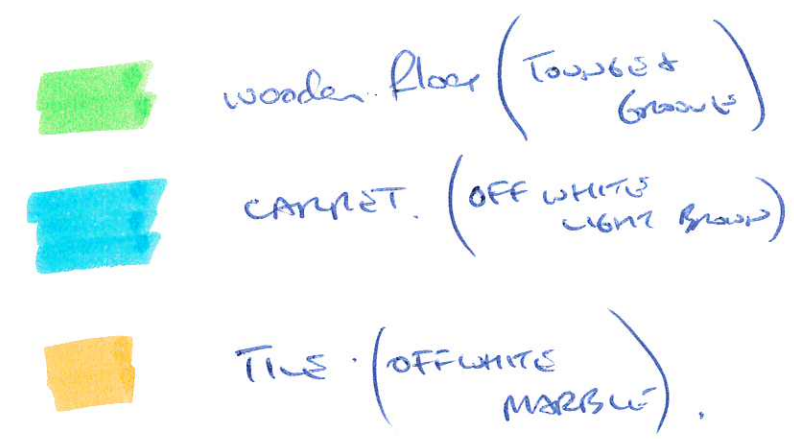 wooden. floor (TOUNGE &
GROOVE)
CARPET. (OFF WHITE
LIGHT BROWN)
TILE. (OFFWHITE
MARBLE).